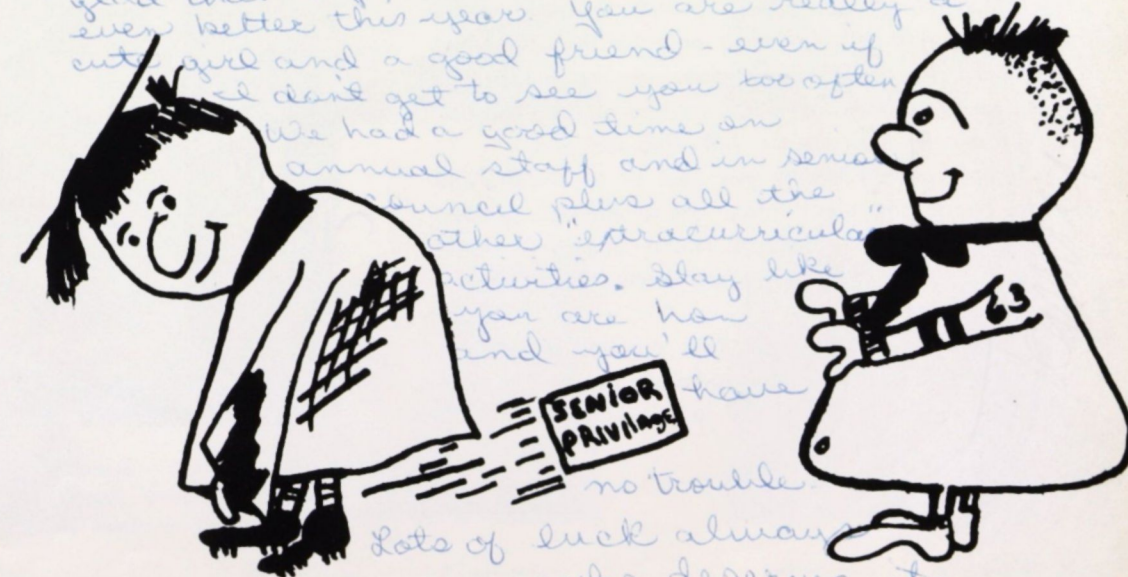 even better this year. You are really a
cute girl and a good friend - even if
I don't get to see you too often
We had a good time on
annual staff and in senior
council plus all the
other "extracurricular"
activities. Stay like
you are now
and you'll
have
SENIOR
PRIVILAGE
63
no trouble.
Lots of luck always